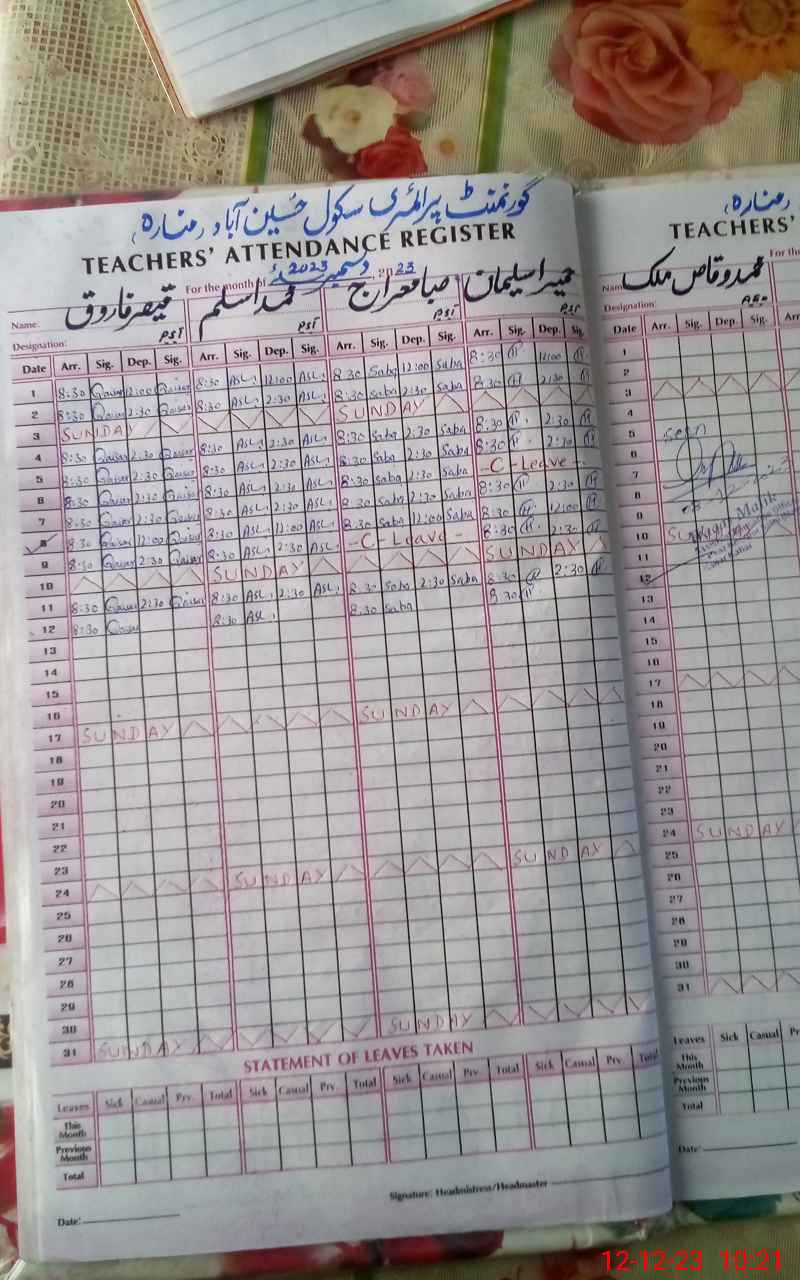 گورنمنٹ پرائمری سکول حُسین آباد رمنارہ
TEACHERS' ATTENDANCE REGISTER
For the month of دسمبر 2023ء 2023
Name: قیصر فاروق محمد اسلم صبا معراج
Designation: PST PST PST PST
Date Arr. Sig. Dep. Sig. Arr. Sig. Dep. Sig. Arr. Sig. Dep. Sig. Arr. Sig. Dep. Sig.
1 8:30 Qaisar 12:00 Qaisar 8:30 ASL 12:00 ASL 8:30 Saba 12:00 Saba 8:30 12:00
2 8:30 Qaisar 2:30 Qaisar 8:30 ASL 2:30 ASL 8:30 Saba 2:30 Saba 8:30 2:30
3 SUNDAY SUNDAY
4 8:30 Qaisar 2:30 Qaisar 8:30 ASL 2:30 ASL 8:30 Saba 2:30 Saba 8:30 2:30
5 8:30 Qaisar 2:30 Qaisar 8:30 ASL 2:30 ASL 8:30 Saba 2:30 Saba 8:30 2:30
6 8:30 Qaisar 2:30 Qaisar 8:30 ASL 2:30 ASL 8:30 Saba 2:30 Saba -C-Leave-
7 8:30 Qaisar 2:30 Qaisar 8:30 ASL 2:30 ASL 8:30 Saba 2:30 Saba 8:30 2:30
8 8:30 Qaisar 12:00 Qaisar 8:30 ASL 12:00 ASL 8:30 Saba 12:00 Saba 8:30 12:00
9 8:30 Qaisar 2:30 Qaisar 8:30 ASL 2:30 ASL -C-Leave- 8:30 2:30
10 SUNDAY SUNDAY
11 8:30 Qaisar 2:30 Qaisar 8:30 ASL 2:30 ASL 8:30 Saba 2:30 Saba 8:30 2:30
12 8:30 Qaisar 8:30 ASL 8:30 Saba 8:30
13
14
15
16
17 SUNDAY SUNDAY
18
19
20
21
22
23
24 SUNDAY SUNDAY
25
26
27
28
29
30
31 SUNDAY SUNDAY
STATEMENT OF LEAVES TAKEN
Leaves Sick Casual Prv. Total Sick Casual Prv. Total Sick Casual Prv. Total Sick Casual Prv. Total
This Month
Previous Month
Total
Signature: Headmistress/Headmaster
Date:
رمنارہ
TEACHERS'
For the
Nam محمد وقاص ملک
Designation:
Date Arr. Sig. Dep. Sig. Arr
1
2
3
4
5 seen
6
7
8
9
10
11
12
13
14
15
16
17
18
19
20
21
22
23
24 SUNDAY
25
26
27
28
29
30
31
Leaves Sick Casual Pr
This Month
Previous Month
Total
Date:
12-12-23 10:21